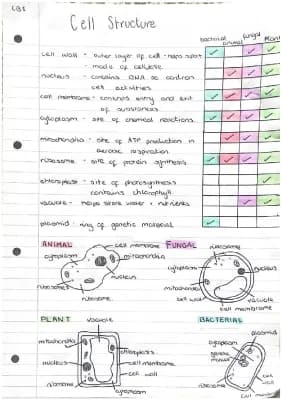 CB1
Cell Structure
bacterial
animal
fungal
plant
cell wall - outer layer of cell - non support
- made of cellulose
nucleus - contains DNA so controls
cell activities
cell membrane - controls entry and exit
of substances
cytoplasm - site of chemical reactions
mitochondria - site of ATP production in
aerobic respiration
ribosome - site of protein synthesis
chloroplast - site of photosynthesis
contains chlorophyll
vacuole - helps store water + nutrients
plasmid - ring of genetic material
ANIMAL
cell membrane
cytoplasm
mitochondria
nucleus
ribosomes
ribosome
FUNGAL
ribosome
cytoplasm
nucleus
mitochondria
cell wall
vacuole
cell membrane
PLANT
vacuole
mitochondria
chloroplasts
nucleus
cell membrane
cell wall
ribosome
cytoplasm
BACTERIAL
plasmid
cytoplasm
ribosome
cell wall